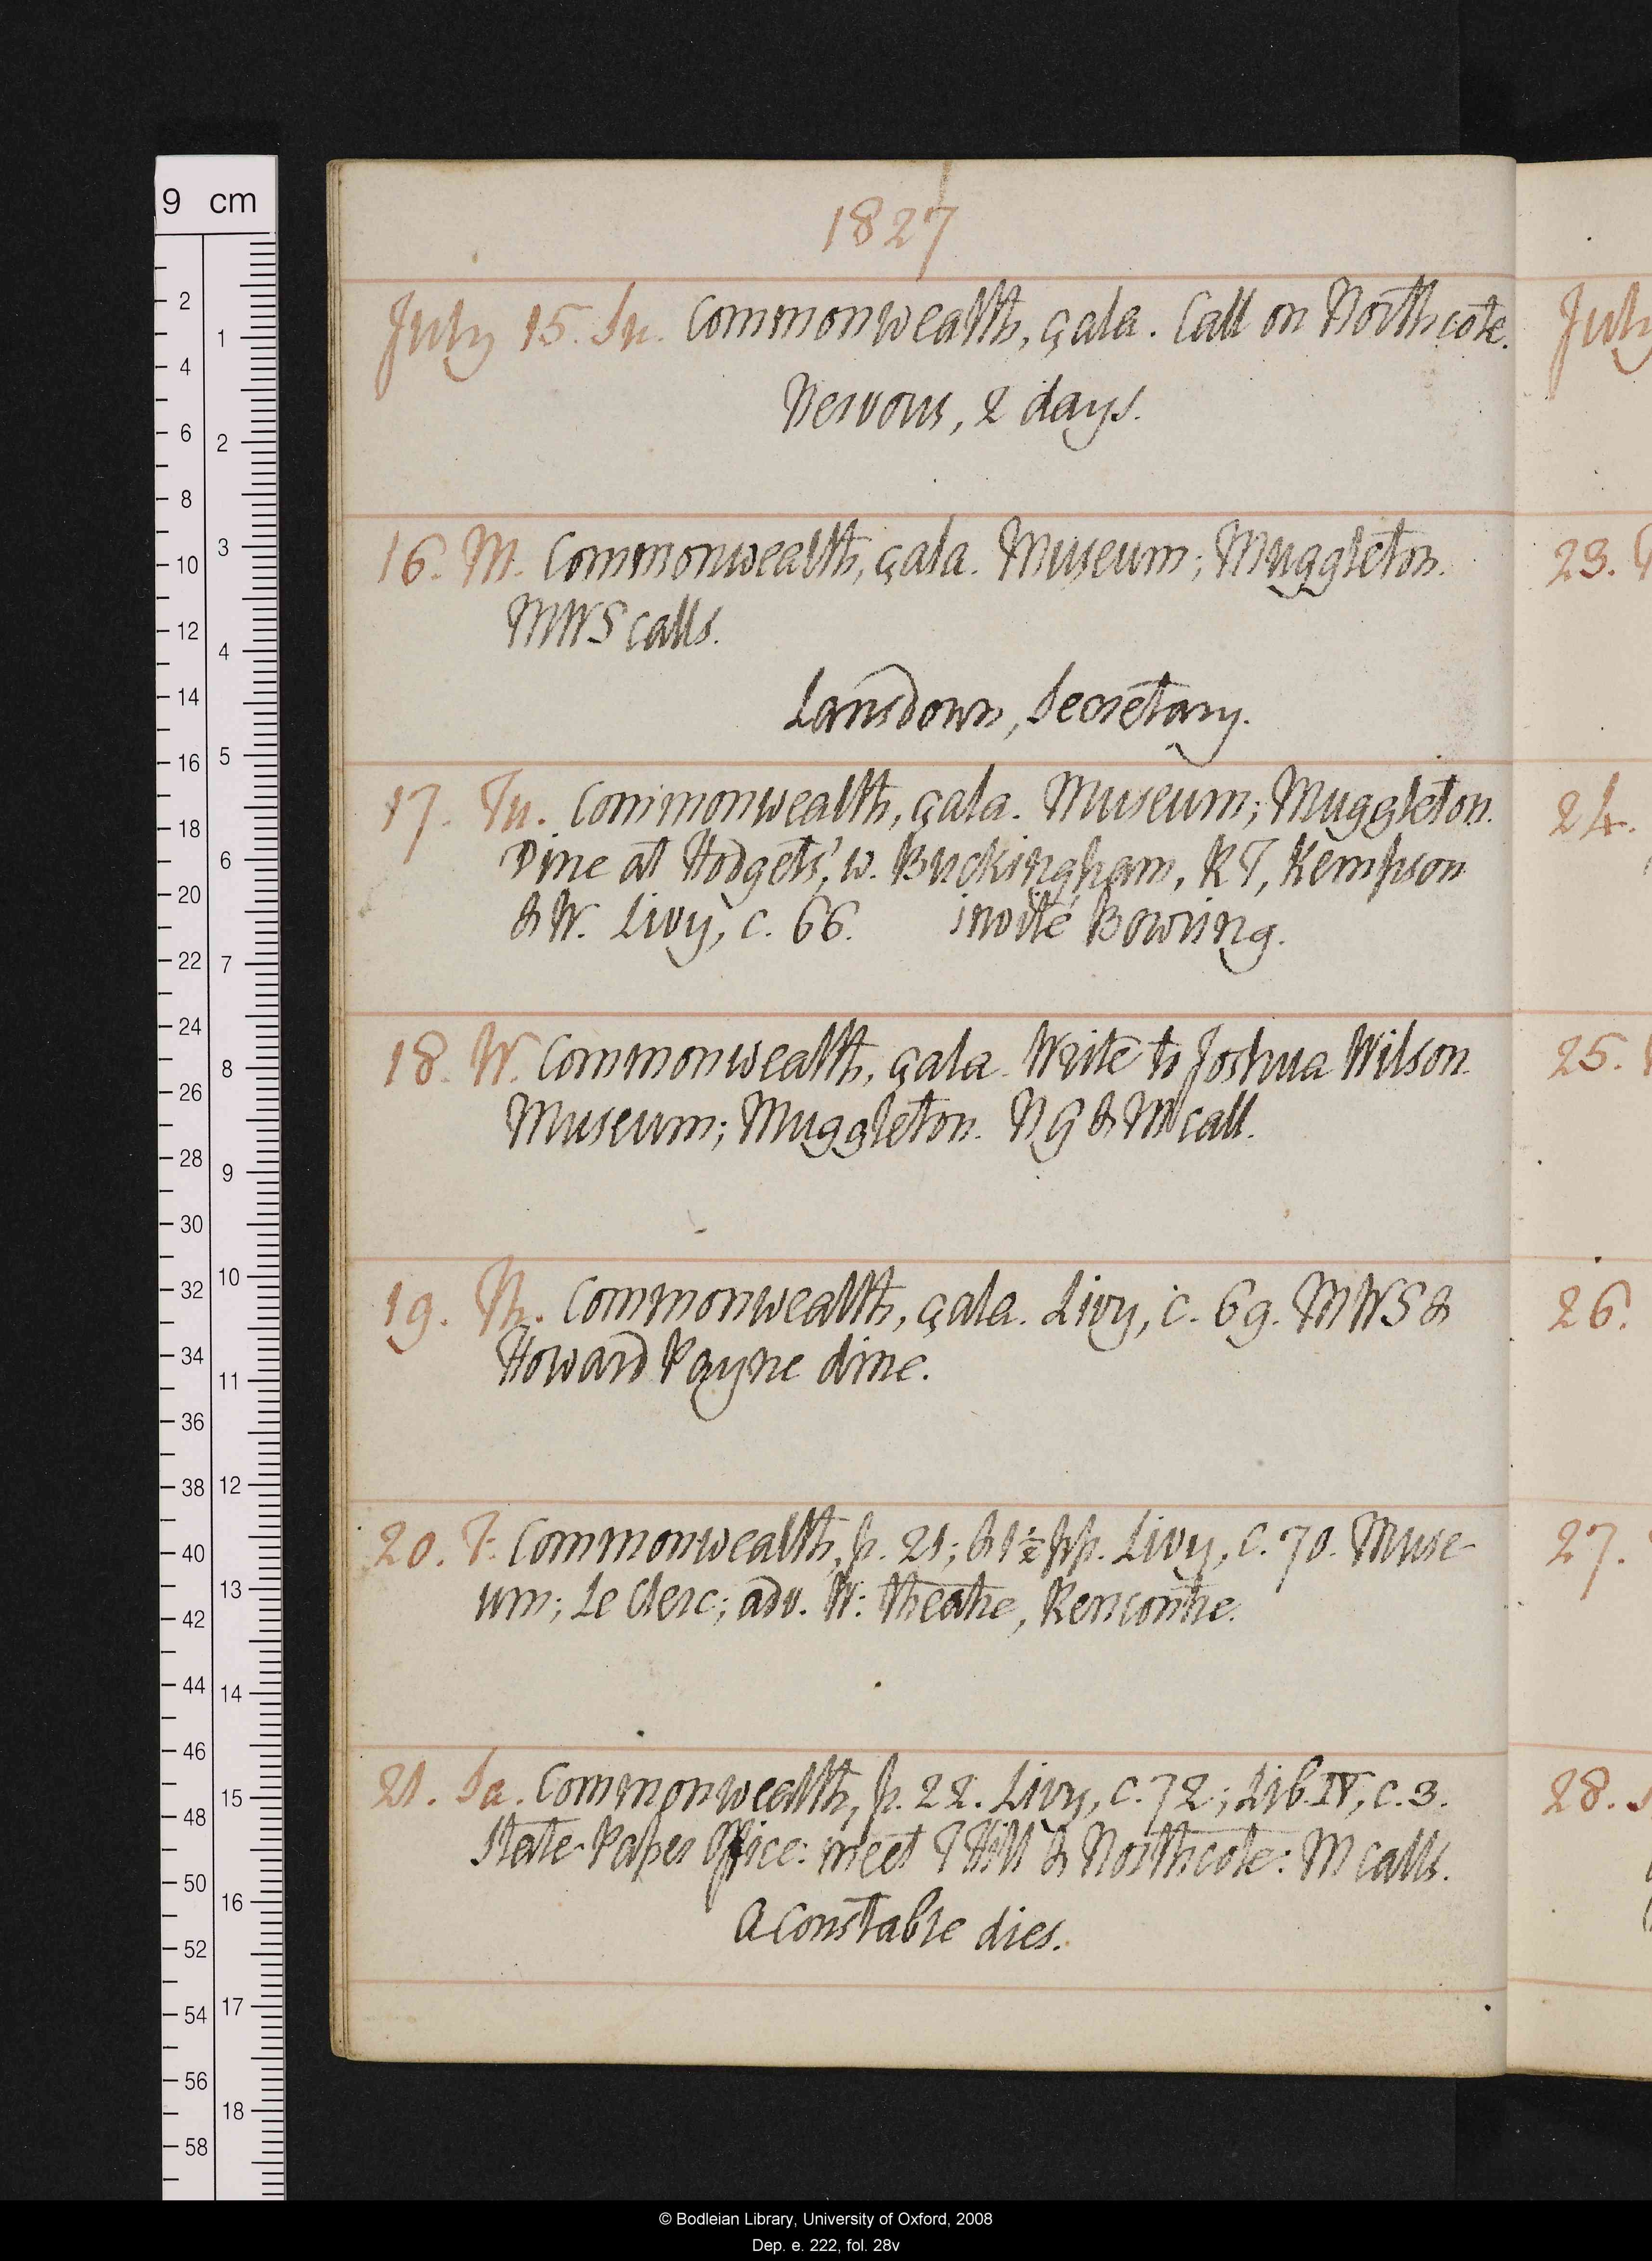 1827
July 15. Su. Commonwealth, çala. Call on Northcote.
Nervous, 2 days.
16. M. Commonwealth, çala. Museum; Muggleton.
MWS calls.
Lansdown, Secretary.
17. Tu. Commonwealth, çala. Museum; Muggleton.
Dine at Hodgets', w. Buckingham, RT, Kempson
& W. Livy, c. 66. invité Bowring.
18. W. Commonwealth, çala. Write to Joshua Wilson
Museum; Muggleton. NG & M call.
19. Th. Commonwealth, çala. Livy, c. 69. MWS &
Howard Payne dine.
20. F. Commonwealth, p. 21; & 1½ pp. Livy, c. 70. Muse-
um; Le Clerc; adv. W: theatre, Rencontre.
21. Sa. Commonwealth, p. 22. Livy, c. 72; Lib. IV, c. 3.
State-Paper Office: meet T Hill & Northcote: M calls.
A Constable dies.
July
23.
24.
25.
26.
27.
28.
9 cm
2
4
6
8
10
12
14
16
18
20
22
24
26
28
30
32
34
36
38
40
42
44
46
48
50
52
54
56
58
1
2
3
4
5
6
7
8
9
10
11
12
13
14
15
16
17
18
© Bodleian Library, University of Oxford, 2008
Dep. e. 222, fol. 28v